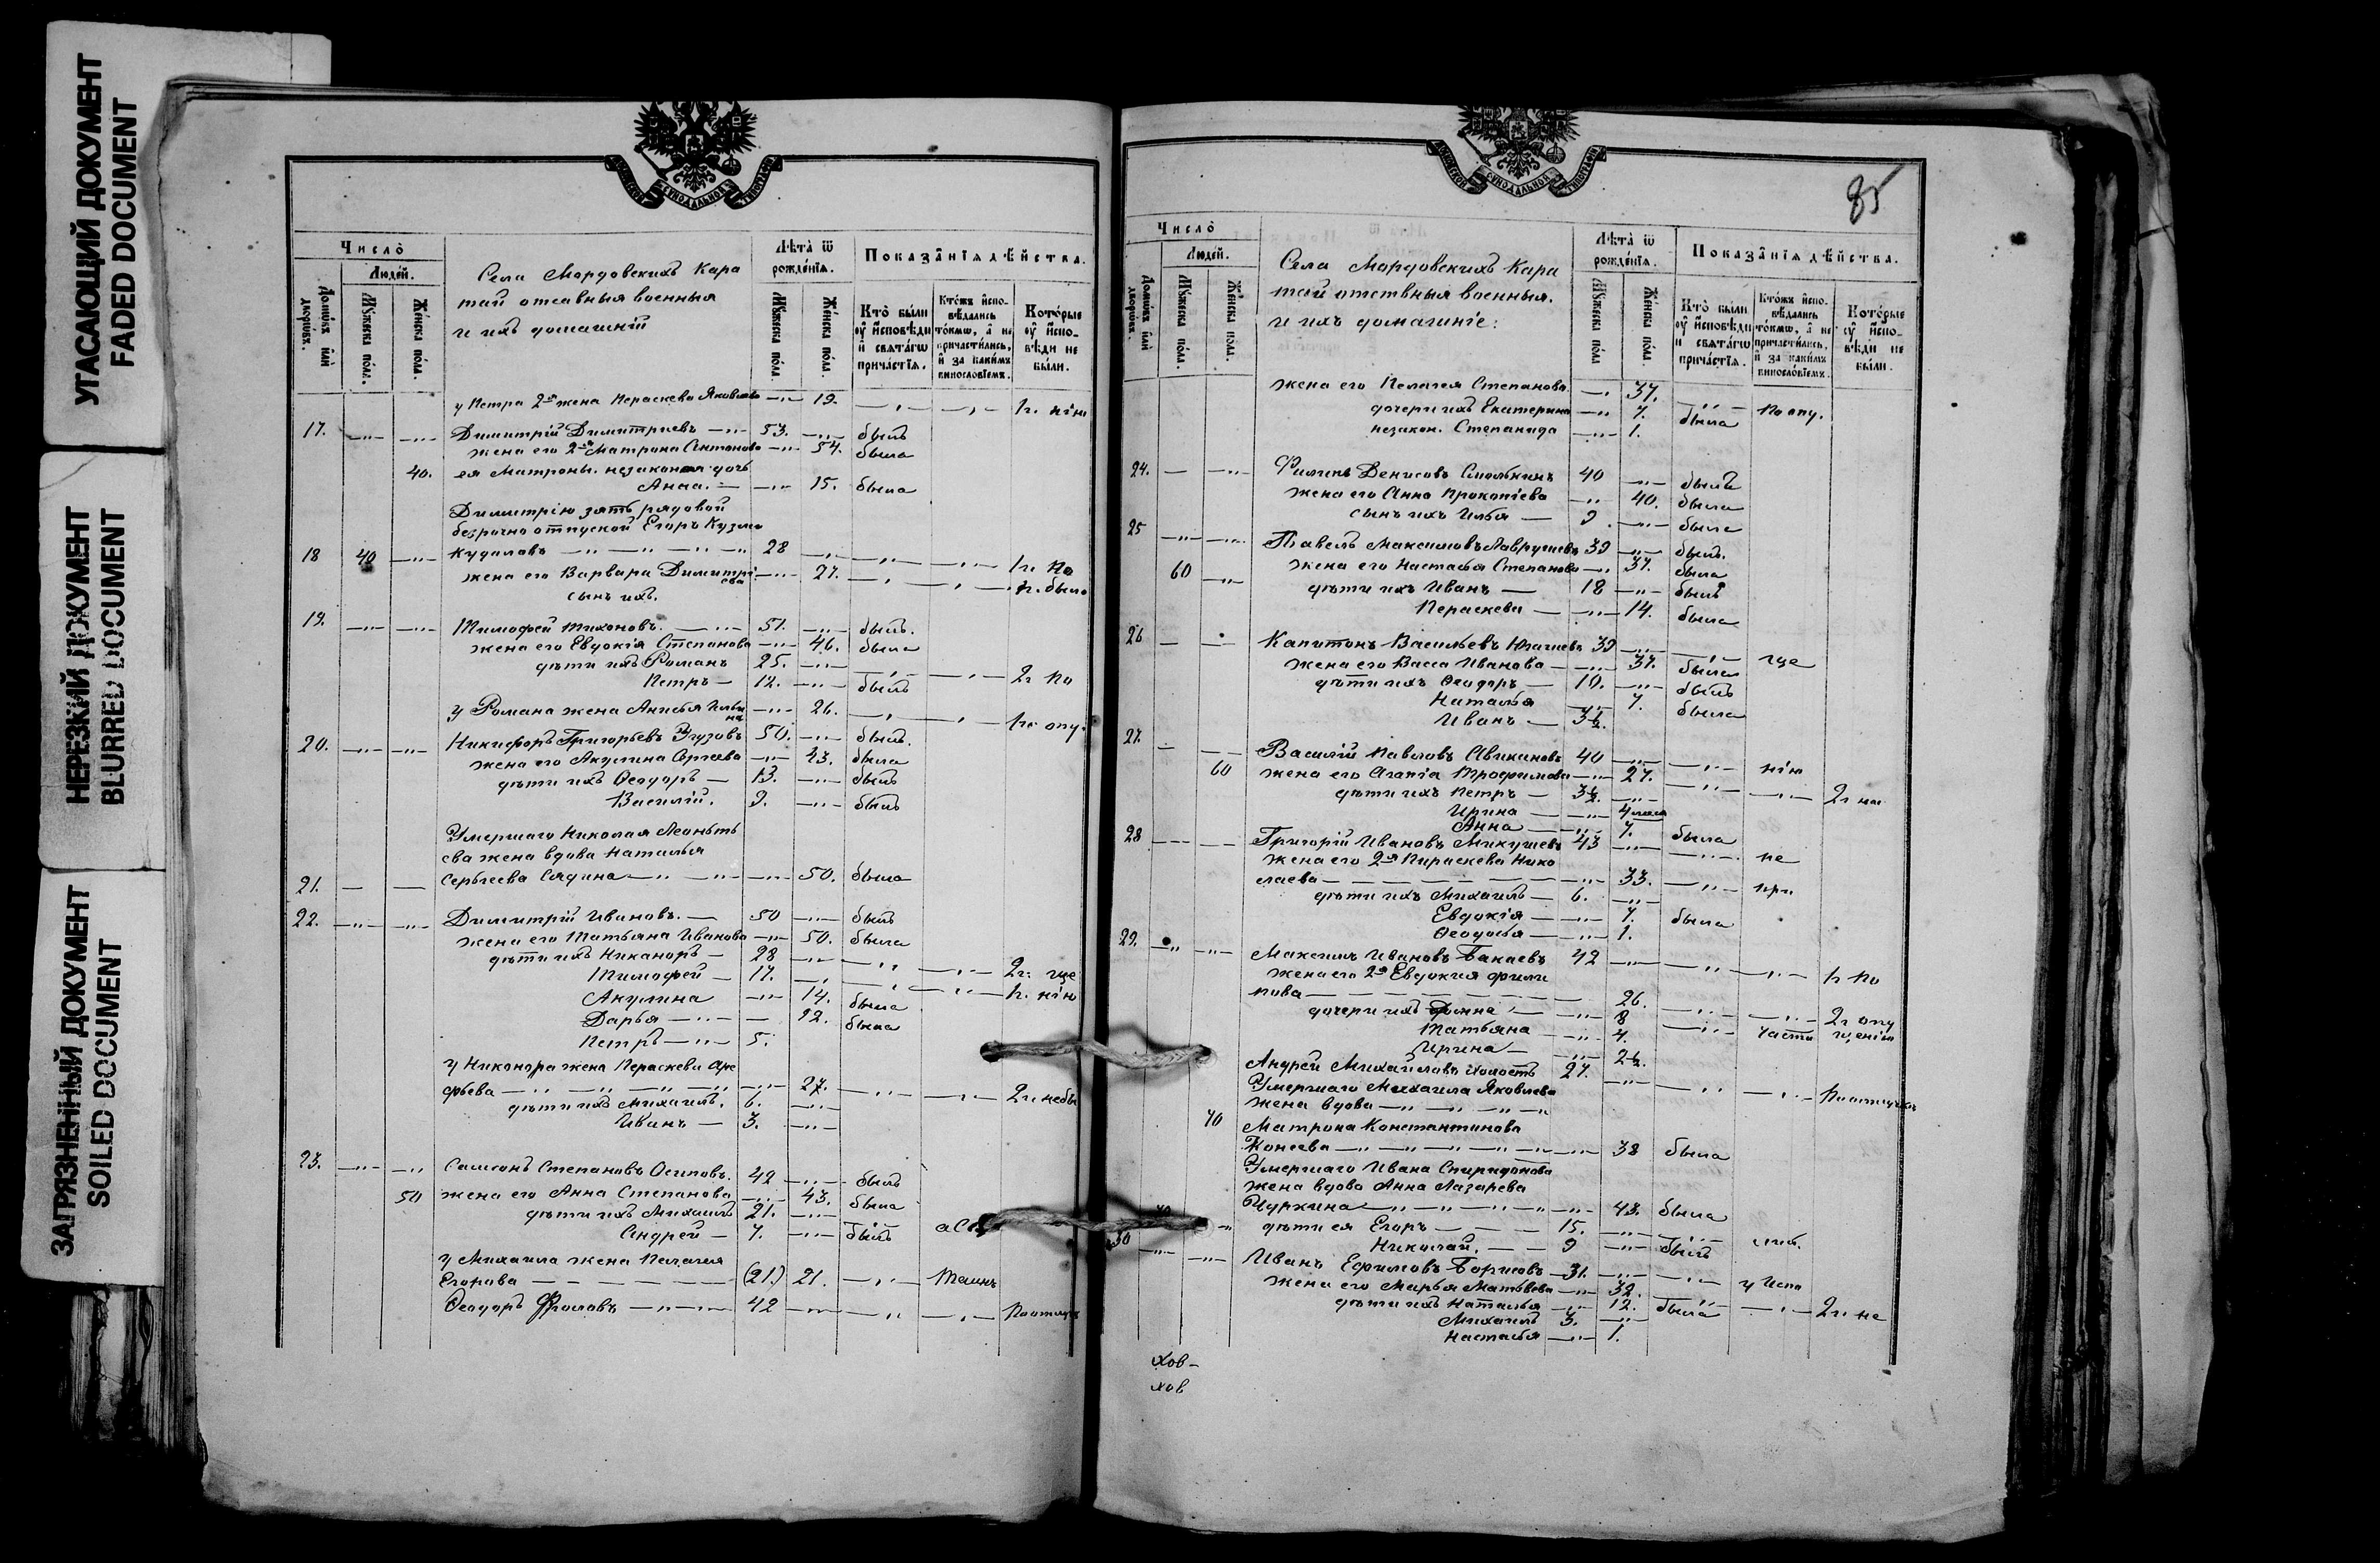 УГАСАЮЩИЙ ДОКУМЕНТ
FADED DOCUMENT
НЕРЕЗКИЙ ДОКУМЕНТ
BLURRED DOCUMENT
ЗАГРЯЗНЕННЫЙ ДОКУМЕНТ
SOILED DOCUMENT
Число̀
Люде́й.
Домѡ́въ и҆лѝ дворѡ́въ.
Мꙋ́жеска по́ла.
Же́нска по́ла.
Села Мордовскихъ Кара
тай отставныя военныя
и ихъ домашній
Лѣта̀ ѿ рожде́нїѧ.
Мꙋ́жеска по́ла.
Же́нска по́ла.
Показа̑нїѧ дѣ́йства.
Кто̀ бы́ли оу҆ и҆сповѣ́ди и҆ свѧта́гѡ прича́стїѧ.
Кто́жъ и҆спо- вѣ́дались то́кмѡ, а҆ не причасти́лись, и҆ за каки́мъ винословїемъ.
Кото́рые оу҆ и҆спо- вѣ́ди не бы́ли.
у Петра 2я жена Параскева Яковлева —„— 19. 1г. нію
17. Димитрій Димитриевъ —„— 53. былъ
жена его 2я Матрона Антонова —„— 54. была
40. ея Матроны незаконая дочь
Анна. — 15. была
Димитрію зять рядовой
безрочно отпуской Егоръ Кузми
18 40 Кудиловъ —„— 28 1г. по
жена его Варвара Димитрі
ева 27. 1г. было
сынъ ихъ.
19. Тимофей Тихоновъ. 51. былъ.
жена его Евдокія Степанова 46. была
дѣти ихъ Романъ 25. 2г по
Петръ — 12. былъ
у Романа жена Анисья Ильи
на 26. 1г. опу.
20. Никифоръ Григорьевъ 50. былъ.
жена его Акулина Сергеева 43. была
дѣти ихъ Ѳеодоръ — 13. былъ
Василій. 9. былъ
Умершаго Николая Леонтъ
ева жена вдова Наталья
21. Сергеева Сядина 50. была
22. Димитрій Ивановъ. — 50 былъ
жена его Татьяна Иванова 50. была
дѣти ихъ Никаноръ — 28 2г. ще
Тимофей — 17. 1г. нію
Акулина 14. была
Дарья 12. была
Петръ 5.
у Никонора жена Параскева Аре
фьева 27. 2г. небы
дѣти ихъ Михаилъ. 6.
Иванъ — 3.
23. Самсонъ Степановъ Осиповъ. 42 былъ
50 жена его Анна Степанова 43. была
дѣти ихъ Михаилъ 21.
Андрей — 7. былъ
у Михаила жена Пелагея
Егорова (21.) 21.
Ѳеодоръ Фроловъ 42 Поотлуч
85
Число̀
Люде́й.
Домѡ́въ и҆лѝ дворѡ́въ.
Мꙋ́жеска по́ла.
Же́нска по́ла.
Села Мордовскихъ Кара
тай отствныя военныя.
и ихъ домашніе:
Лѣта̀ ѿ рожде́нїѧ.
Мꙋ́жеска по́ла
Же́нска по́ла.
Показа̑нїѧ дѣ́йства.
Кто̀ бы́ли оу҆ и҆сповѣ́ди и҆ свѧта́гѡ прича́стїѧ.
Кто́жъ и҆спо- вѣ́дались то́кмѡ, а҆ не причасти́лись, и҆ за каки́мъ винословїемъ.
Кото́рые оу҆ и҆спо- вѣ́ди не бы́ли.
жена его Пелагея Степанова 37.
дочери ихъ Екатерина 7. была По опу.
незакон. Степанида 1.
24. Филипъ Денисовъ 40 былъ
жена его Анна Прокопіева 40. была
сынъ ихъ Илья — 9. была
25 Павелъ Максимовъ Лаврушевъ 39 былъ.
60 жена его Настасья Степанова 37. была
дѣти ихъ Иванъ — 18 былъ
Параскева — 14. была
26 Капитонъ Васильевъ 39 ще
жена его Васса Иванова 37. была
дѣти ихъ Ѳеодоръ — 10. былъ
Наталья 7. была
Иванъ — 3½.
27. Василій Павловъ 40 нію
60 жена его Агапіа Трофимова 27.
дѣти ихъ Петръ — 3½. 2г
Ирина 4
Анна 7. была
28 Григорій Ивановъ Микушевъ 43 не
жена его 2я Параскева Нико
лаева 33. при
дѣти ихъ Михаилъ 6.
Евдокія 7. была
Ѳеодосья 1.
29. Максимъ Ивановъ Бакаевъ 42 1г по
жена его 2я Евдокия Фили
пова 26. 2г опу
дочери ихъ 8 части щенію
Татьяна 4.
Ирина — 2½.
Андрей Михайловъ холостъ 27.
Умершаго Михаила Яковлева
жена вдова
70 Матрона Константинова
Конеева 38 была
Умершаго Ивана Спиридонова
жена вдова Анна Лазарева
Чуркина 43. была
дѣти ея Егоръ 15.
Николай. 9 былъ
30 Иванъ Ефимовъ Борисовъ 31. у Испо
жена его Марья Матвѣева 32.
дѣти ихъ Наталья 12. была 2г. не
Михаилъ 3.
Настасья 1.
хов-
хов